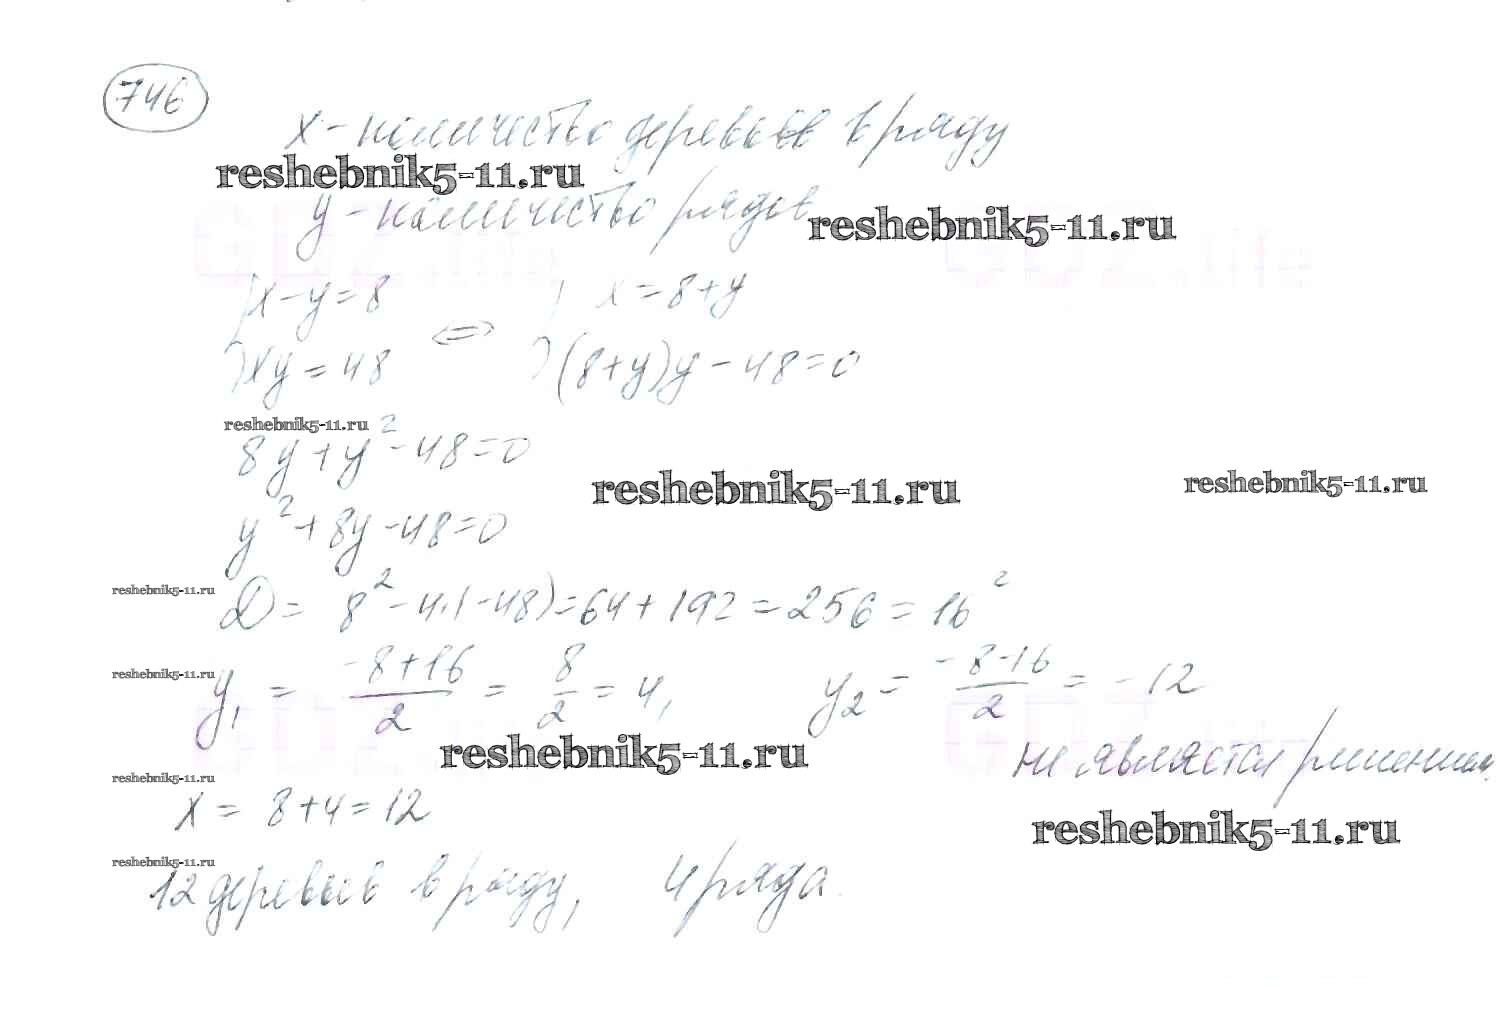 746
x - количество деревьев в ряду
reshebnik5-11.ru
y - количество рядов
reshebnik5-11.ru
GDZ.life GDZ.life
x - y = 8 x = 8 + y
⇔
xy = 48 (8 + y)y - 48 = 0
reshebnik5-11.ru
8y + y² - 48 = 0
reshebnik5-11.ru reshebnik5-11.ru
y² + 8y - 48 = 0
reshebnik5-11.ru
D = 8² - 4·(-48) = 64 + 192 = 256 = 16²
reshebnik5-11.ru
y₁ = (-8+16)/2 = 8/2 = 4, y₂ = (-8-16)/2 = -12
GDZ GDZ
reshebnik5-11.ru
не является решением
reshebnik5-11.ru
x = 8 + 4 = 12
reshebnik5-11.ru
reshebnik5-11.ru
12 деревьев в ряду, 4 ряда.